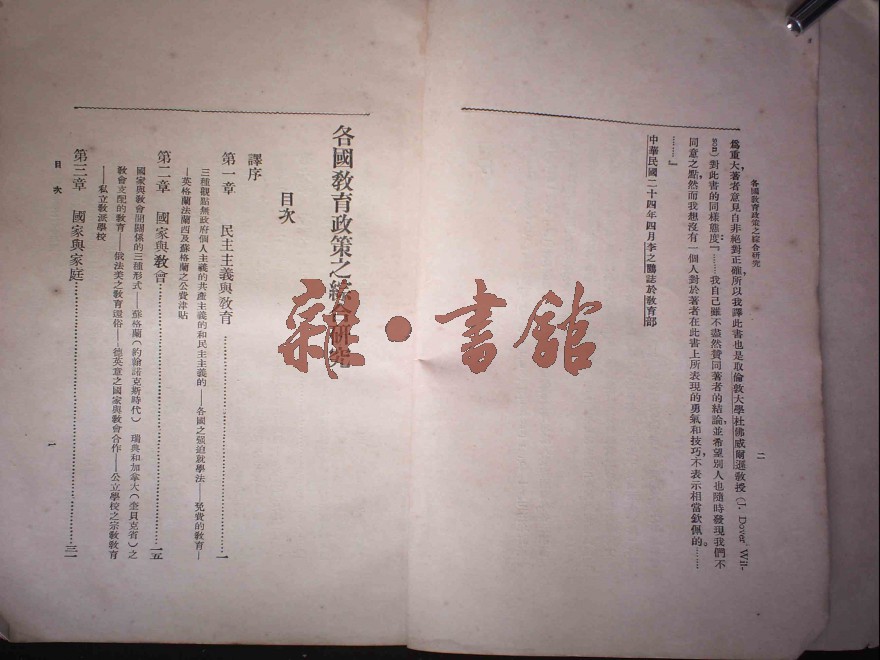 各國教育政策之綜合研究
二
爲重大，著者意見自非絕對正確，所以我譯此書也是取倫敦大學杜佛威爾遜教授（J. Dover Wil-
son）對此書的同樣態度：『……我自己雖不盡然贊同著者的結論，並希望別人也隨時發現我們不
同意之點，然而我想沒有一個人對於著者在此書上所表現的勇氣和技巧，不表示相當欽佩的。……
……』
中華民國二十四年四月李之鷗誌於教育部
各國教育政策之綜合研究
目次
譯序
第一章 民主主義與教育……一
三種觀點無政府個人主義的共產主義的和民主主義的——各國之强迫就學法——免費的教育—
—英格蘭法蘭西及蘇格蘭之公費津貼
第二章 國家與教會……一五
國家與教會間關係的三種形式——蘇格蘭（約翰諾克斯時代） 瑞典和加拿大（奎貝克省）之
教會支配的教育——俄法美之教育還俗——德英意之國家與教會合作——公立學校之宗教教育
——私立教派學校
第三章 國家與家庭……三一
目次
一
雜·書館